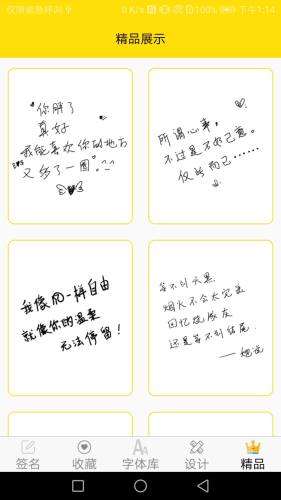 仅限紧急呼叫
0 K/s 100% 下午1:14
精品展示
你胖了
真好
我能喜欢你的地方
又多了一圈。^^
所谓心事,
不过是不如己意。
仅此而已……
我像风一样自由
就像你的温柔
无法停留!
等不到天黑
烟火不会太完美
回忆烧成灰
还是等不到结尾
——她说
签名
收藏
字体库
设计
精品